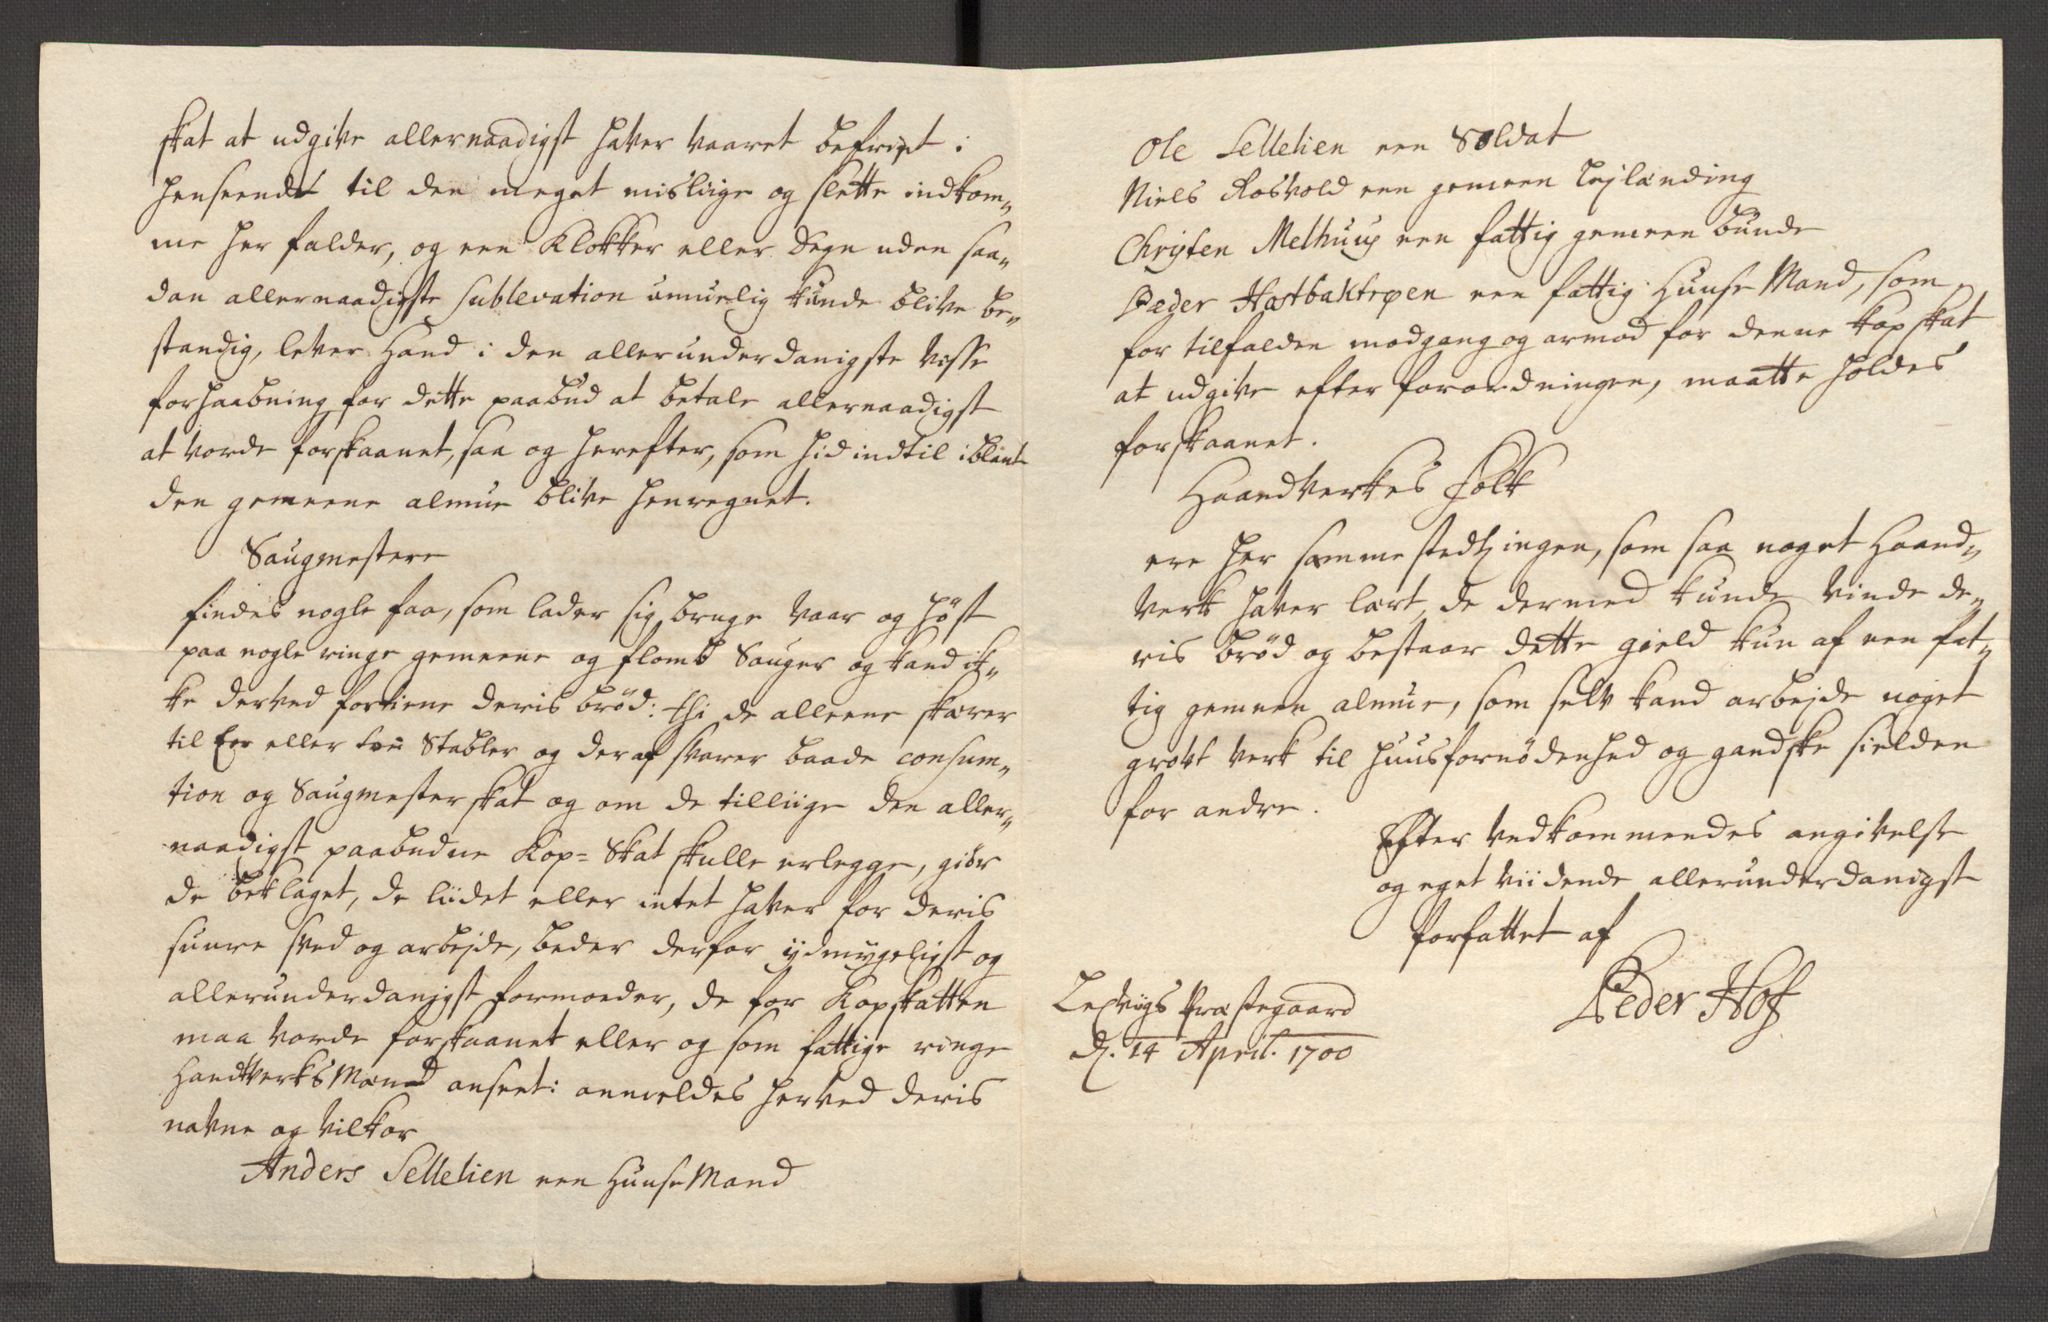 skat at udgive allernaadigst haver vaaret befriet i
henseende til den meget misliige og slette indkom¬
me her falder, og een Klokker eller Degn uden saa¬
dan allernaadigste Sublevation umuelig kunde blive be¬
standig, lever Hand i den allerunderdanigste visse
forhaabning for dette paabud at betale allernaadigst
at vorde forskaanet, saa og herefter, som hid indtil iblant
den gemeene almue blive henregnet.
Saugmestere
findes nogle faa, som lader sig bruge Vaar og höst
paa nogle ringe gemeene og flomb Sauger og kand ik¬
ke derved fortiene deris bröd: thi de alleene skærer
til Een eller toe Stabler og deraf svarer baade consum¬
tion og Saugmester skat og om de tilliige den aller¬
naadigst paabudne Kop=Skat skulle erlegge, giör
de beklaget, de liidet eller intet haver for deris
suure sved og arbejde, beder derfor ydmygeligst og
allerunderdanigst formoeder, de for Kopskatten
maa vorde forskaanet eller og som fattige ringe
HandtverksMænd anseet: anmeldes herved deris
navne og vilkor
Anders Sellelien een HuuseMand
Ole Sellelien een Soldat
Niels Rosvold een gemeen Lejlænding
Christen Melhuus een fattig gemeen bunde
Peder Hastbaktrøen een fattig HuuseMand, som
for tilfalden modgang og armod for denne kopskat
at udgive efter forordningen, maatte holdes
forskaanet.
Haandverkes folk
ere her sammestedtz ingen, som saa noget Haand¬
verk haver lært, de dermed kunde vinde de¬
ris bröd og bestaar dette gield kun af een fat¬
tig gemeen almue, som selv kand arbejde noget
grovt verk til huusfornödenhed og gandske sielden
for andre.
Efter vedkommendes angivelse
og eget viidende allerunderdanigst
forfattet af
Peder Hof
Lexviigs Præstegaard
d. 14 April. 1700